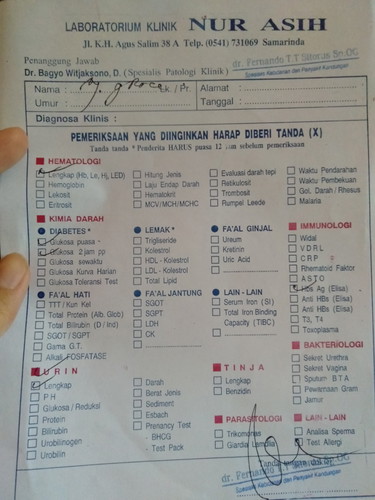 LABORATORIUM KLINIK NUR ASIH
Jl. K.H. Agus Salim 38 A Telp. (0541) 731069 Samarinda
Penanggung Jawab
Dr. Bagyo Witjaksono, D. (Spesialis Patologi Klinik)
dr. Fernando T.T Sitorus Sp.OG
Spesialis Kebidanan dan Penyakit Kandungan
Nama : Ny. Lk./Pr. Alamat :
Umur : Tanggal :
Diagnosa Klinis :
PEMERIKSAAN YANG DIINGINKAN HARAP DIBERI TANDA (X)
Tanda tanda * Penderita HARUS puasa 12 jam sebelum pemeriksaan
HEMATOLOGI
Lengkap (Hb, Le, Hj, LED)
Hemoglobin
Lekosit
Eritrosit
Hitung Jenis
Laju Endap Darah
Hematokrit
MCV/MCH/MCHC
Evaluasi darah tepi
Retikulosit
Trombosit
Rumpel Leede
Waktu Pendarahan
Waktu Pembekuan
Gol. Darah / Rhesus
Malaria
KIMIA DARAH
DIABETES *
Glukosa puasa
Glukosa 2 jam pp
Glukosa sewaktu
Glukosa Kurva Harian
Glukosa Toleransi Test
LEMAK *
Trigliseride
Kolestrol
HDL - Kolestrol
LDL - Kolestrol
Total Lipid
FA'AL GINJAL
Ureum
Kretinin
Uric Acid
IMMUNOLOGI
Widal
V D R L
C R P
Rhematoid Faktor
A S T O
Hbs Ag (Elisa)
Anti HBs (Elisa)
Anti HBs (Elisa)
T3, T4
Toxoplasma
FA'AL HATI
TTT / Kun Kel
Total Protein (Alb. Glob)
Total Bilirubin (D / Ind)
SGOT / SGPT
Gama G.T.
Alkali FOSFATASE
FA'AL JANTUNG
SGOT
SGPT
LDH
CK
LAIN - LAIN
Serum Iron (SI)
Total Iron Binding
Capacity (TIBC)
BAKTERIOLOGI
Sekret Urethra
Sekret Vagina
Sputum B T A
Pewarnaan Gram
Jamur
URIN
Lengkap
P H
Glukosa / Reduksi
Protein
Bilirubin
Urobilinogen
Urobilin
Darah
Berat Jenis
Sediment
Esbach
Prenancy Test
- BHCG
- Test Pack
TINJA
Lengkap
Benzidin
PARASITOLOGI
Trikomonas
Giardia Lamblia
LAIN - LAIN
Analisa Sperma
Test Allergi
Tanda tangan
dr. Fernando Sp.OG
Spesialis Kebidanan dan Penyakit Kandungan